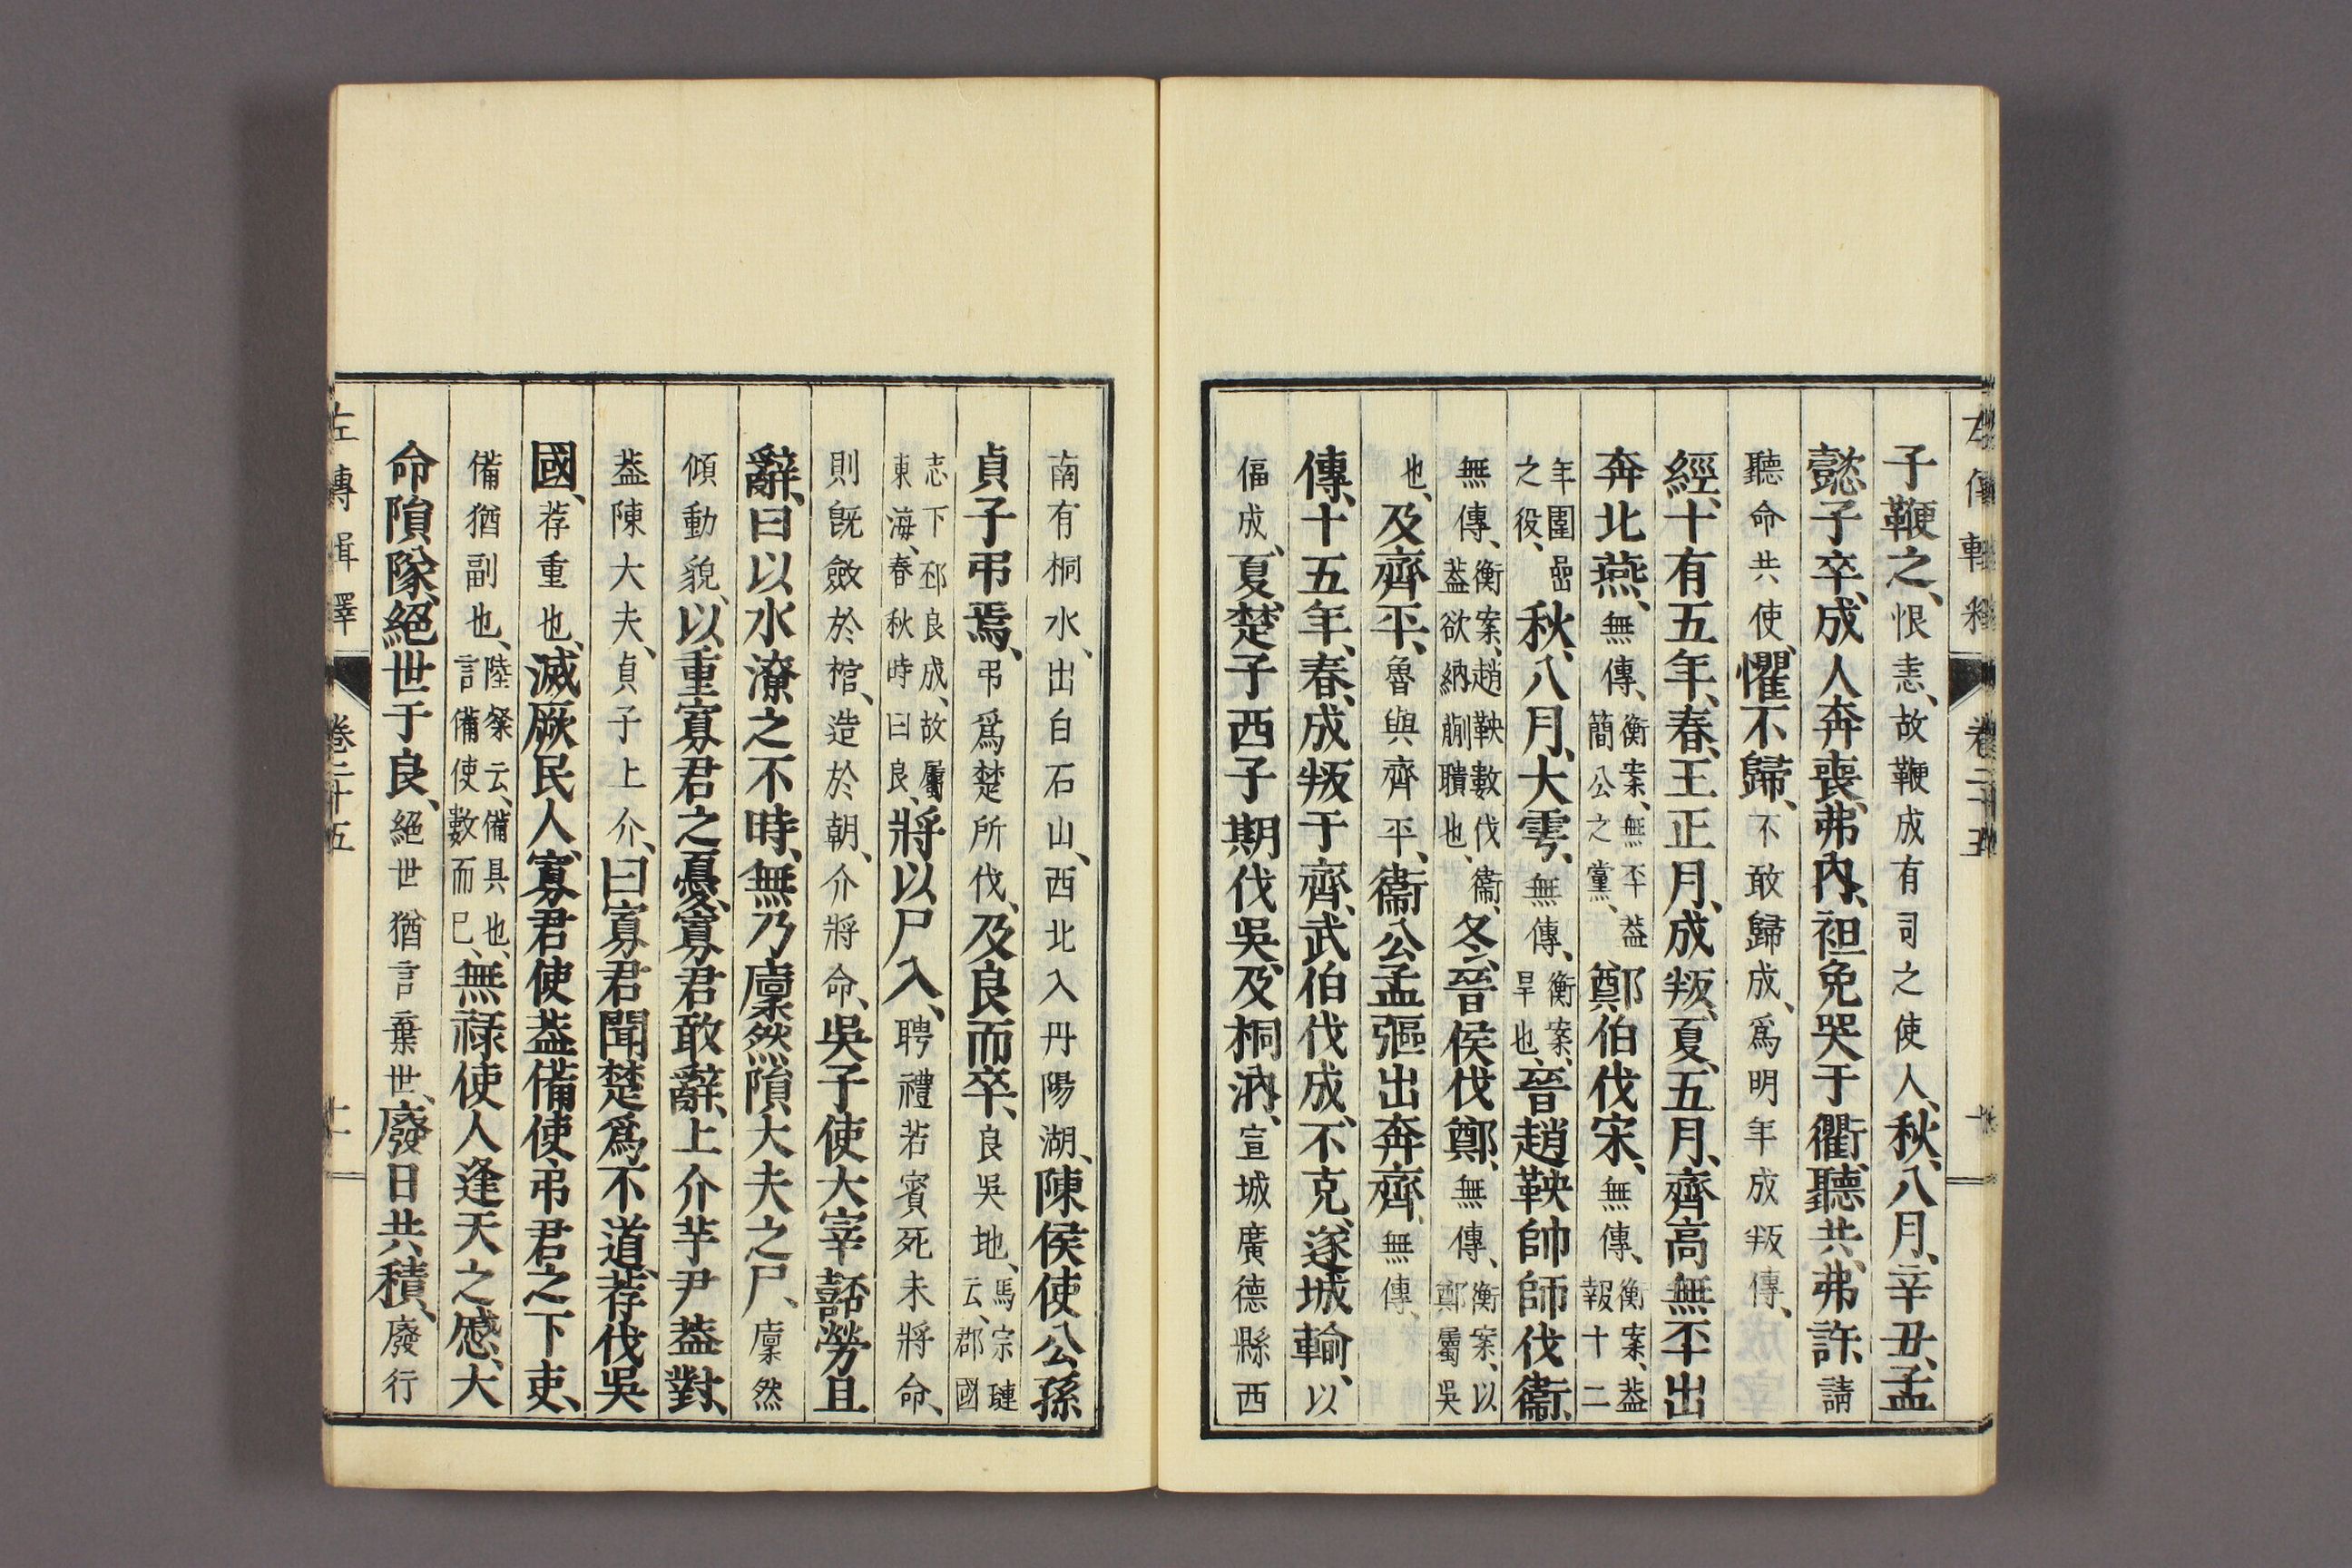 子鞭之、恨恚、故鞭成有司之使人、秋、八月、辛丑、孟
懿子卒、成人奔喪、弗內、袒免哭于衢、聽共、弗許、請
聽命共使、懼不歸、不敢歸成、爲明年成叛傳、
經、十有五年、春、王正月、成叛、夏、五月、齊高無㔻出
奔北燕、無傳、衡案、無㔻葢簡公之黨、鄭伯伐宋、無傳、衡案、葢報十二
年圍嵒之役、秋、八月、大雩、無傳、衡案、旱也、晉趙鞅帥師伐衞、
無傳、衡案、趙鞅數伐衞、葢欲納蒯聵也、冬、晉侯伐鄭、無傳、衡案、以鄭屬吳
也、及齊平、魯與齊平、衞公孟彄出奔齊、無傳、
傳、十五年、春、成叛于齊、武伯伐成、不克、遂城輸、以
偪成、夏、楚子西子期伐吳、及桐汭、宣城廣德縣西
左傳輯釋 卷二十五
南有桐水、出白石山、西北入丹陽湖、陳侯使公孫
貞子弔焉、弔爲楚所伐、及良而卒、良吳地、馬宗璉云、郡國
志下邳良成、故屬東海、春秋時曰良、將以尸入、聘禮若賓死未將命、
則旣斂於棺、造於朝、介將命、吳子使大宰嚭勞、且
辭、曰以水潦之不時、無乃廩然隕大夫之尸、廩然
傾動貌、以重寡君之憂、寡君敢辭、上介芋尹葢對、
葢陳大夫、貞子上介、曰寡君聞楚爲不道、荐伐吳
國、荐重也、滅厥民人、寡君使葢備使、弔君之下吏、
備猶副也、陸粲云、備具也、言備使數而巳、無祿使人逢天之慼、大
命隕隊、絕世于良、絕世猶言棄世、廢日共積、廢行
左傳輯釋 卷二十五 十一